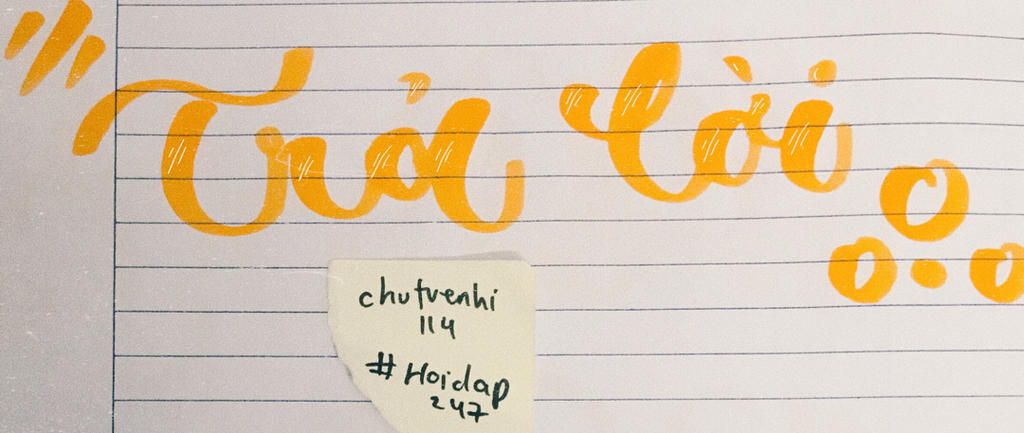 Trả lời
chutuenhi
114
#Hoidap
247